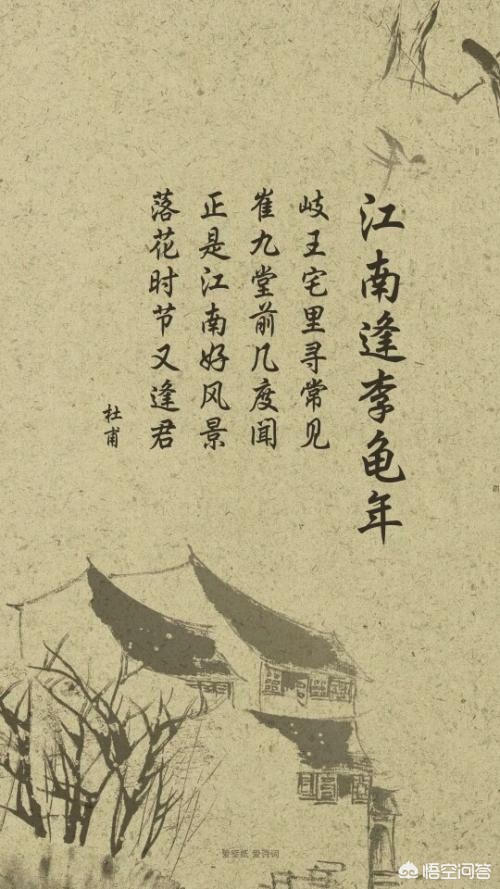 江南逢李龟年
岐王宅里寻常见
崔九堂前几度闻
正是江南好风景
落花时节又逢君
杜甫
爱诗词
悟空问答